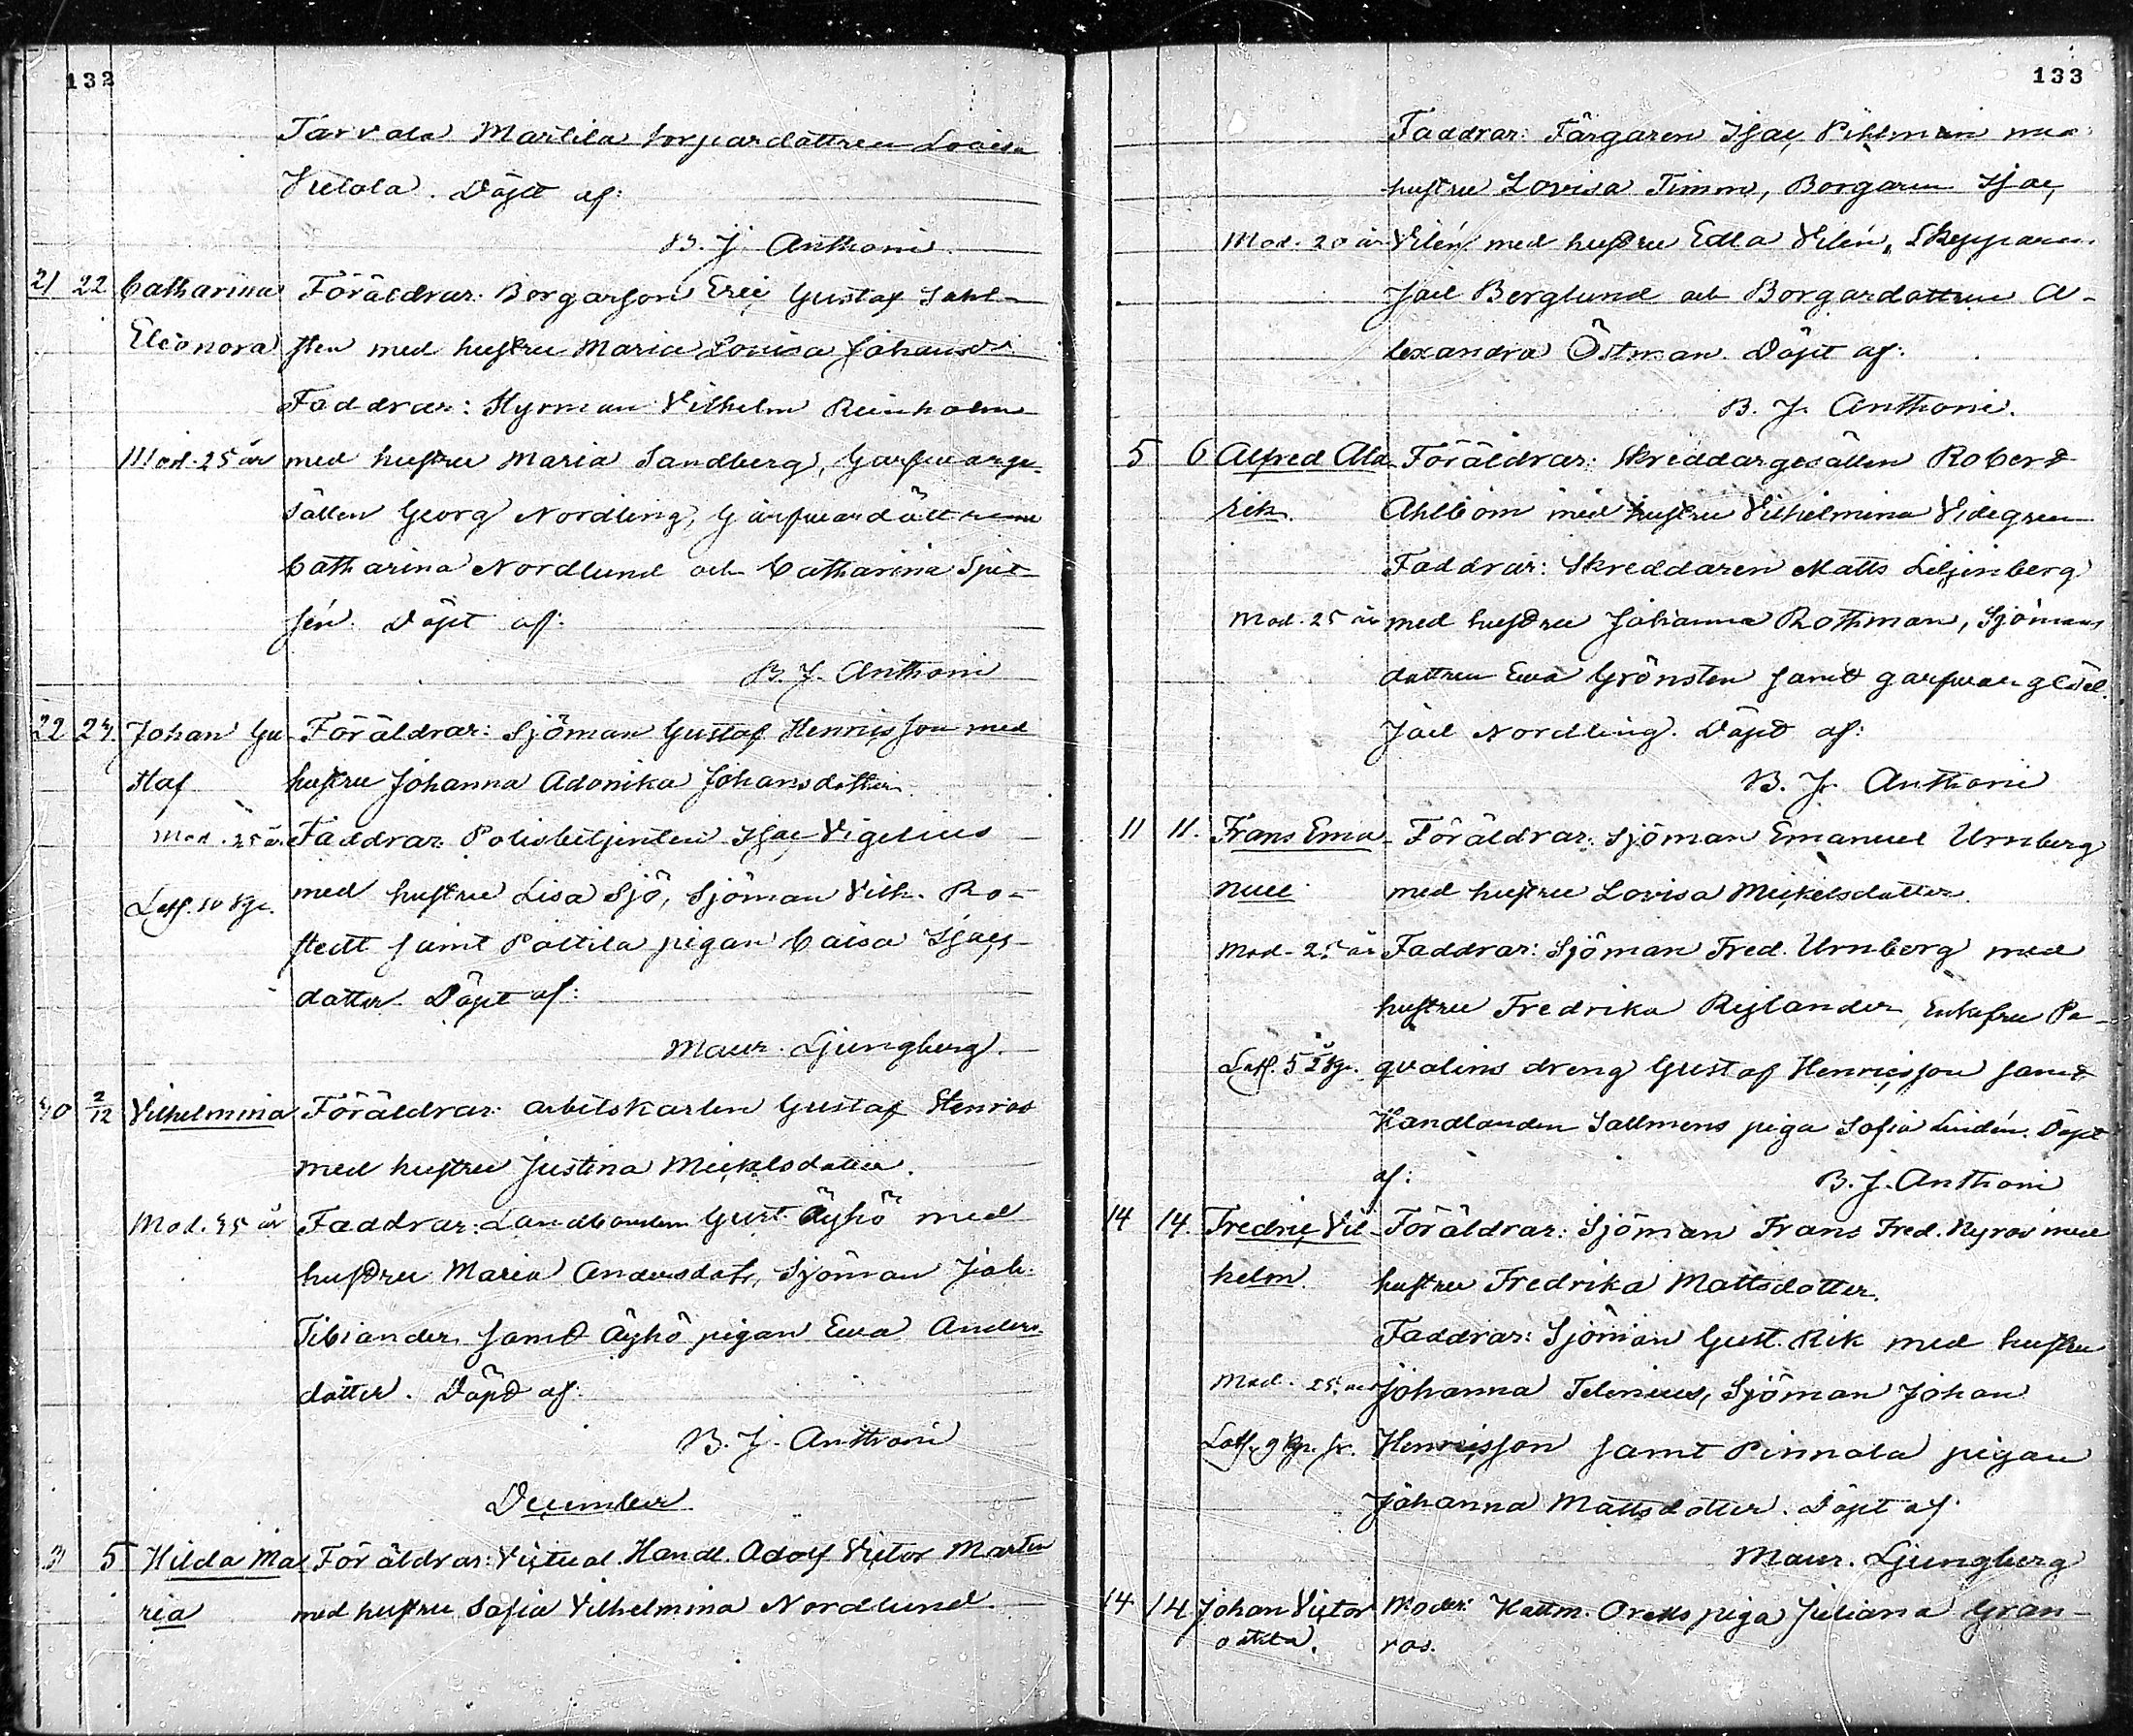 132
Tarvala Martila torpardottren Lovisa
Kulola. Döpt af:
B. J. Anthoni
21 22 Catharina Föräldrar: Borgarson Eric Gustaf Sahl-
Eleonora sten med hustru Maria Lovisa Johansdr
Faddrar: Styrman Vilhelm Reinholm
Mod. 25 år med hustru Maria Sandberg, Garfvarge-
sällen Georg Nordling, Garfvardöttrarne
Catharina Nordlund och Catharina
sén. Döpt af:
B. J. Anthoni
22 24. Johan Gu- Föräldrar: Sjöman Gustaf Henricsson med
staf hustru Johanna Adonika Johansdotter.
Mod. 25 år Faddrar: Polisbetjenten Isac Vigelius
med hustru Lisa Sjö, Sjöman Vilh. Ro-
stedt samt Pattila pigan Caisa Isacs-
dotter Döpt af:
Maur. Ljungberg.
30 2/12 Vilhelmina Föräldrar: arbetskarlen Gustaf Stenros
med hustru Justina Mickelsdotter.
Mod. 35 år Faddrar: Landbonden Gust. Äyhö med
hustru Maria Andersdotr, Sjöman Joh.
Tibiander samt Äyhö pigan Eva Anders-
dotter. Döpt af:
B. J. Anthoni
December
3 5 Hilda Ma- Föräldrar: Victual. Handl. Adolf Victor Marten
ria med hustru Sofia Vilhelmina Nordlund.
133
Faddrar: Färgaren Isac Pihlman med
hustru Lovisa Timm, Borgaren Isac
Mod. 20 år Vilén med hustru Edla Vilén, Skepparen
Joel Berglund och Borgardottren A-
lexandra Östman. Döpt af:
B. J. Anthoni.
5 6 Alfred Ald- Föräldrar: Skreddargesällen Robert
rik. Ahlbom med hustru Vilhelmina Videgren
Faddrar: Skreddaren Matts Liljenberg
Mod. 25 år med hustru Johanna Rothman, Sjömans
dottren Eva Grönsten samt garfvaregesel.
Joel Nordling. Döpt af:
B. J. Anthoni
11 11. Frans Ema- Föräldrar: Sjöman Emanuel Urnberg
nuel med hustru Lovisa Mickelsdotter.
Mod. 25 år Faddrar: Sjöman Fred. Urnberg med
hustru Fredrika Rejlander, Enkefru Pa-
qvalins dreng Gustaf Henricsson samt
Handlanden Sallmens piga Sofia Lindén. Döpt
af: B. J. Anthoni
14 14. Fredric Vil- Föräldrar: Sjöman Frans Fred. Nyros med
helm. hustru Fredrika Mattsdotter.
Faddrar: Sjöman Gust. Rik med hustru
Mod. 25 år Johanna Telenius, Sjöman Johan
Henricsson samt Pinnala pigan
Johanna Mattsdotter. Döpt af
Maur. Ljungberg
14 14 Johan Victor Moder: Rattm. piga Juliana Gran-
oäkta. ros.